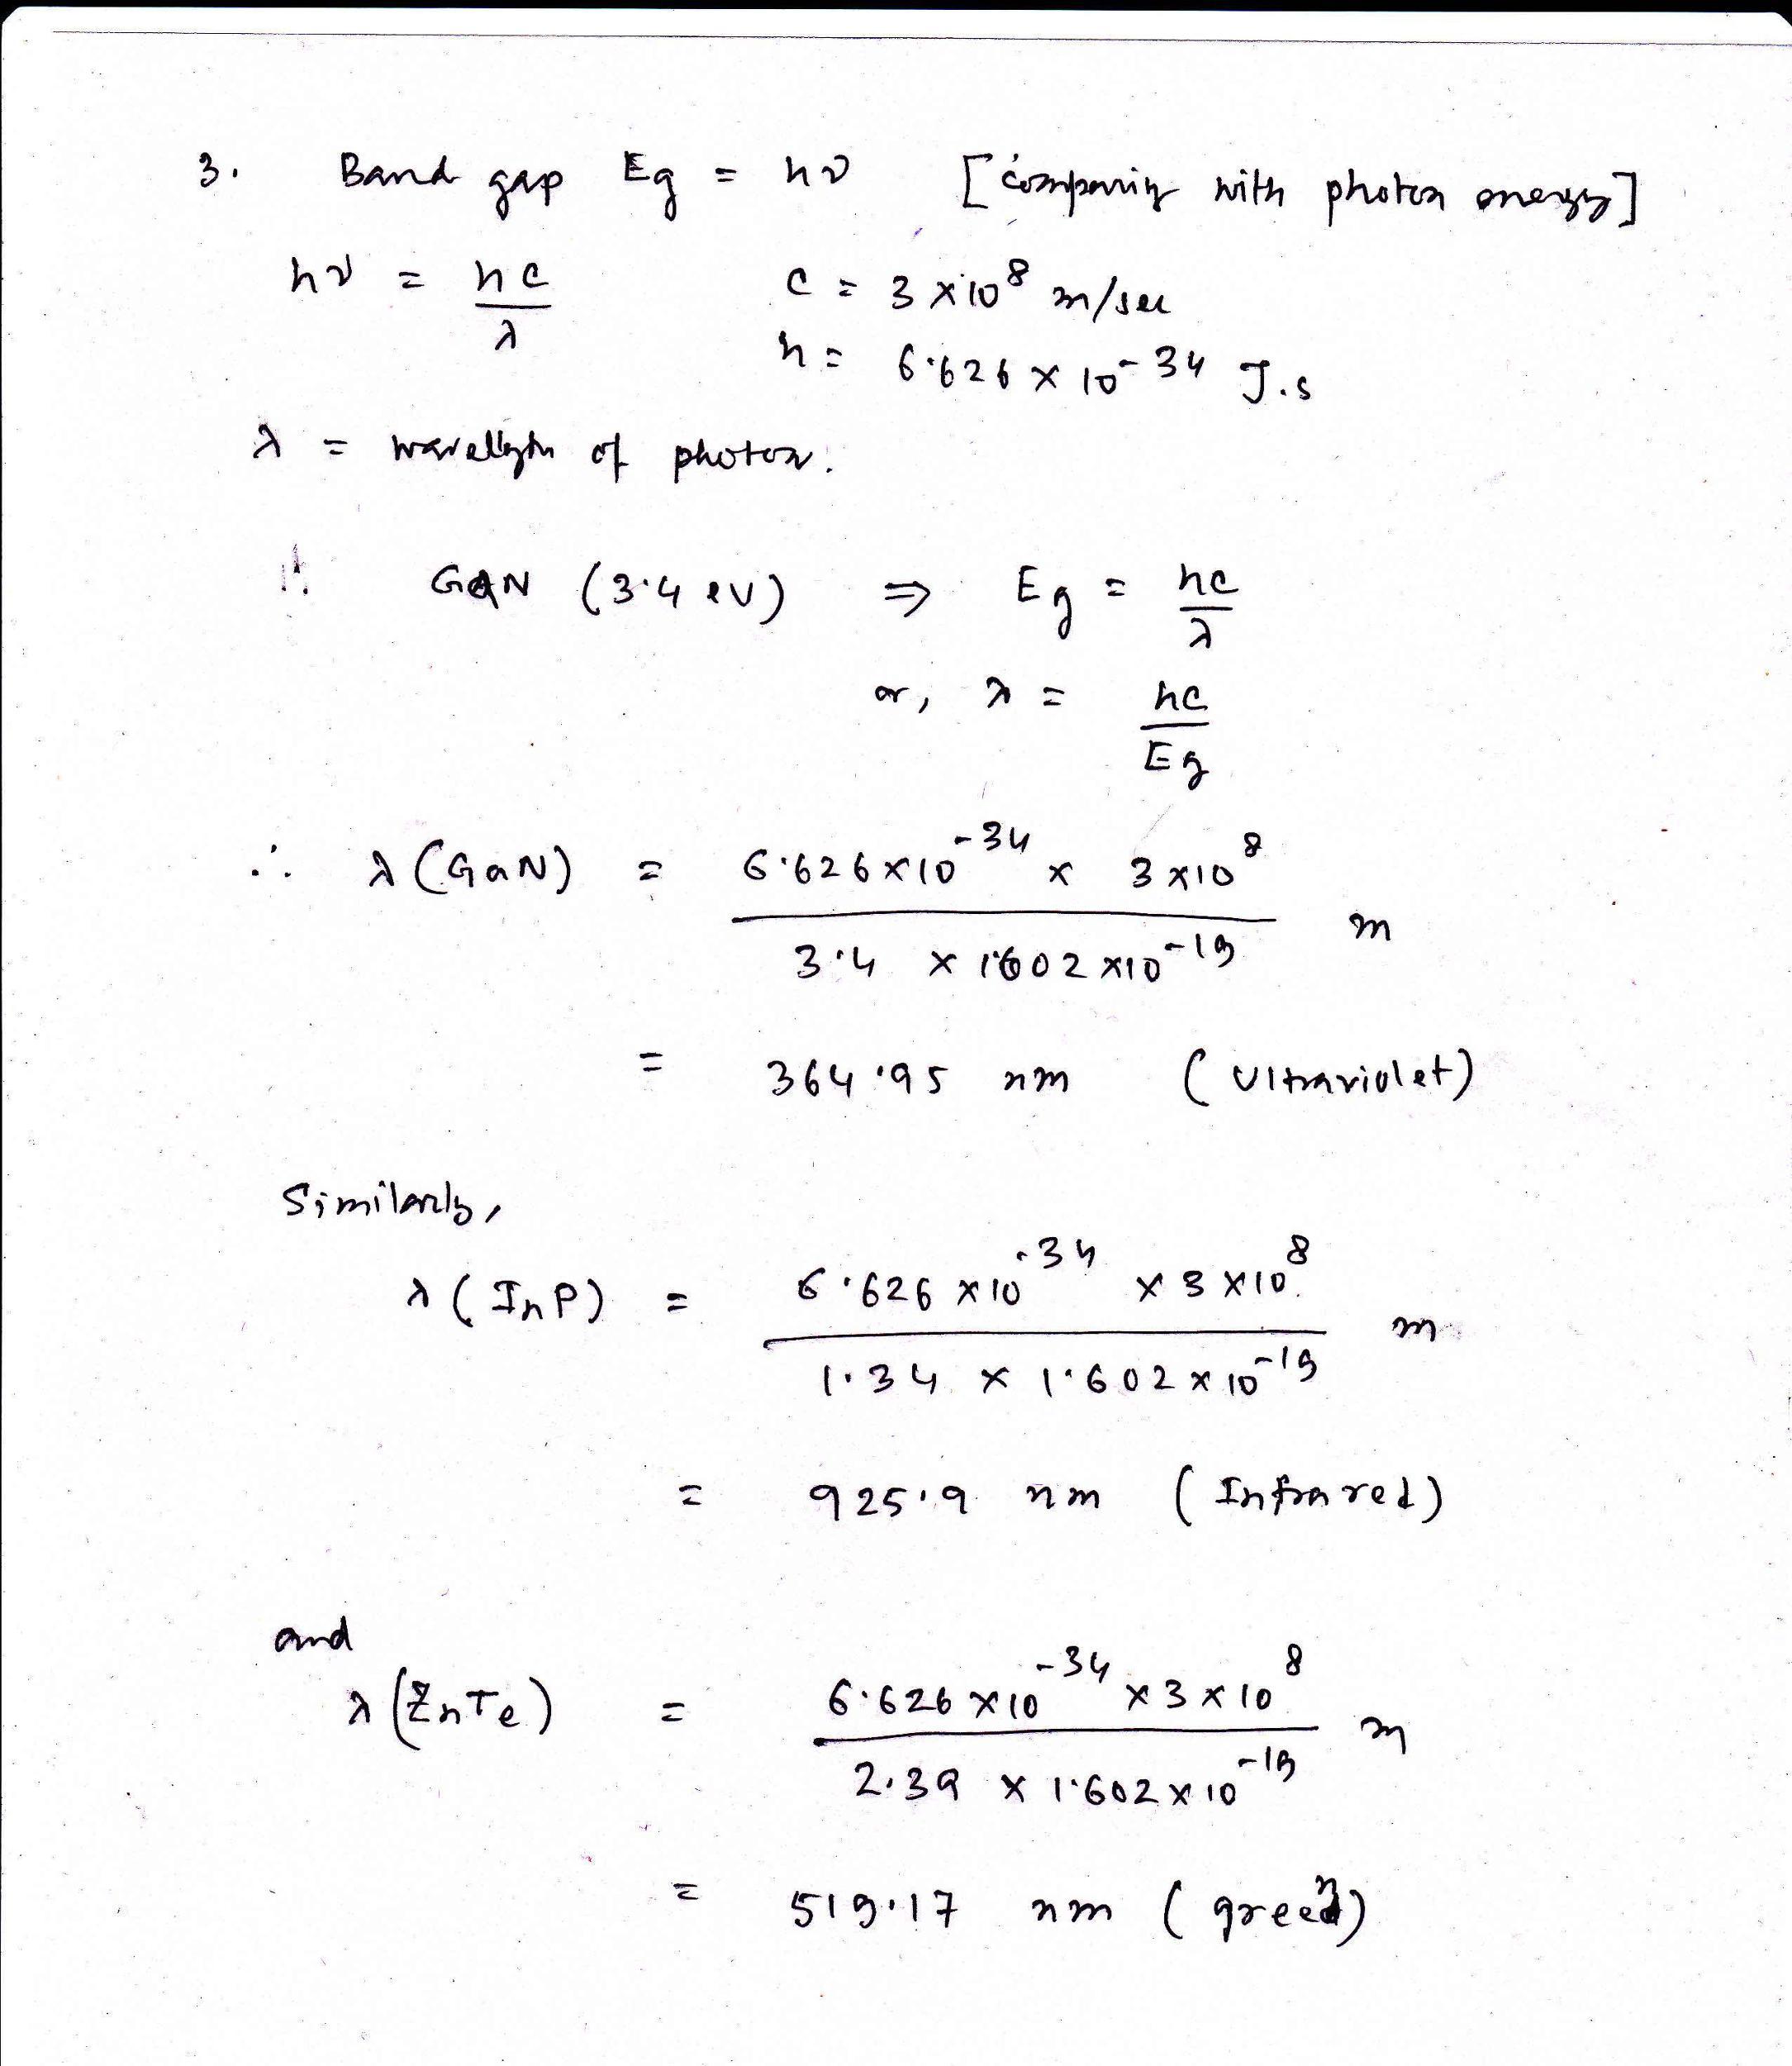 3. Band gap Eg = hν [comparing with photon energy]
hν = hc/λ c = 3×10^8 m/sec
h = 6.626 × 10^-34 J.s
λ = wavellgth of photon.
∴ GaN (3.4 eV) ⇒ Eg = hc/λ
or, λ = hc/Eg
∴ λ(GaN) = 6.626×10^-34 × 3×10^8 / 3.4 × 1.602×10^-19 m
= 364.95 nm (Ultraviolet)
Similarly,
λ(InP) = 6.626×10^-34 × 3×10^8 / 1.34 × 1.602×10^-19 m
= 925.9 nm (Infrared)
and
λ(ZnTe) = 6.626×10^-34 × 3×10^8 / 2.39 × 1.602×10^-19 m
= 519.17 nm (green)